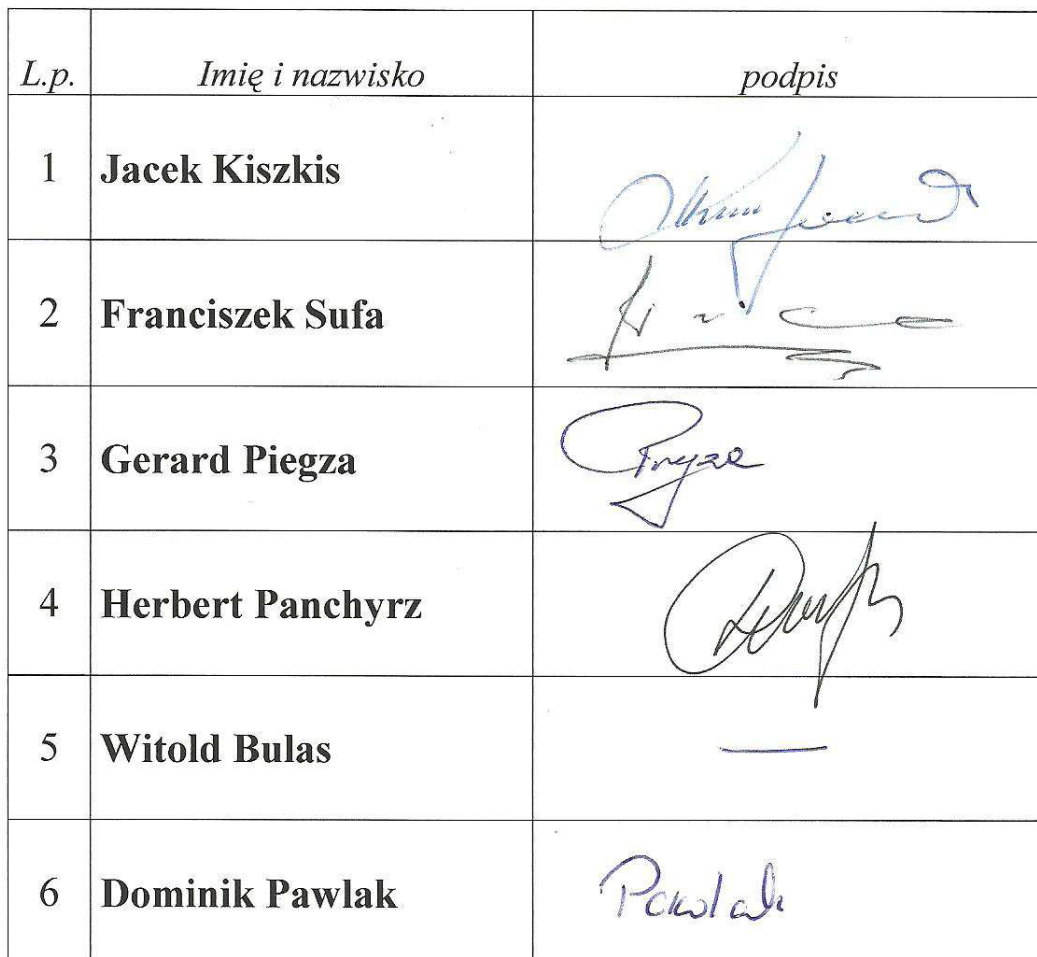 L.p. Imię i nazwisko podpis
1 Jacek Kiszkis
2 Franciszek Sufa
3 Gerard Piegza
4 Herbert Panchyrz
5 Witold Bulas —
6 Dominik Pawlak Pawlak